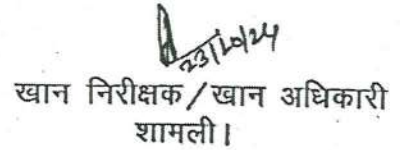 23/10/24
खान निरीक्षक/खान अधिकारी
शामली।